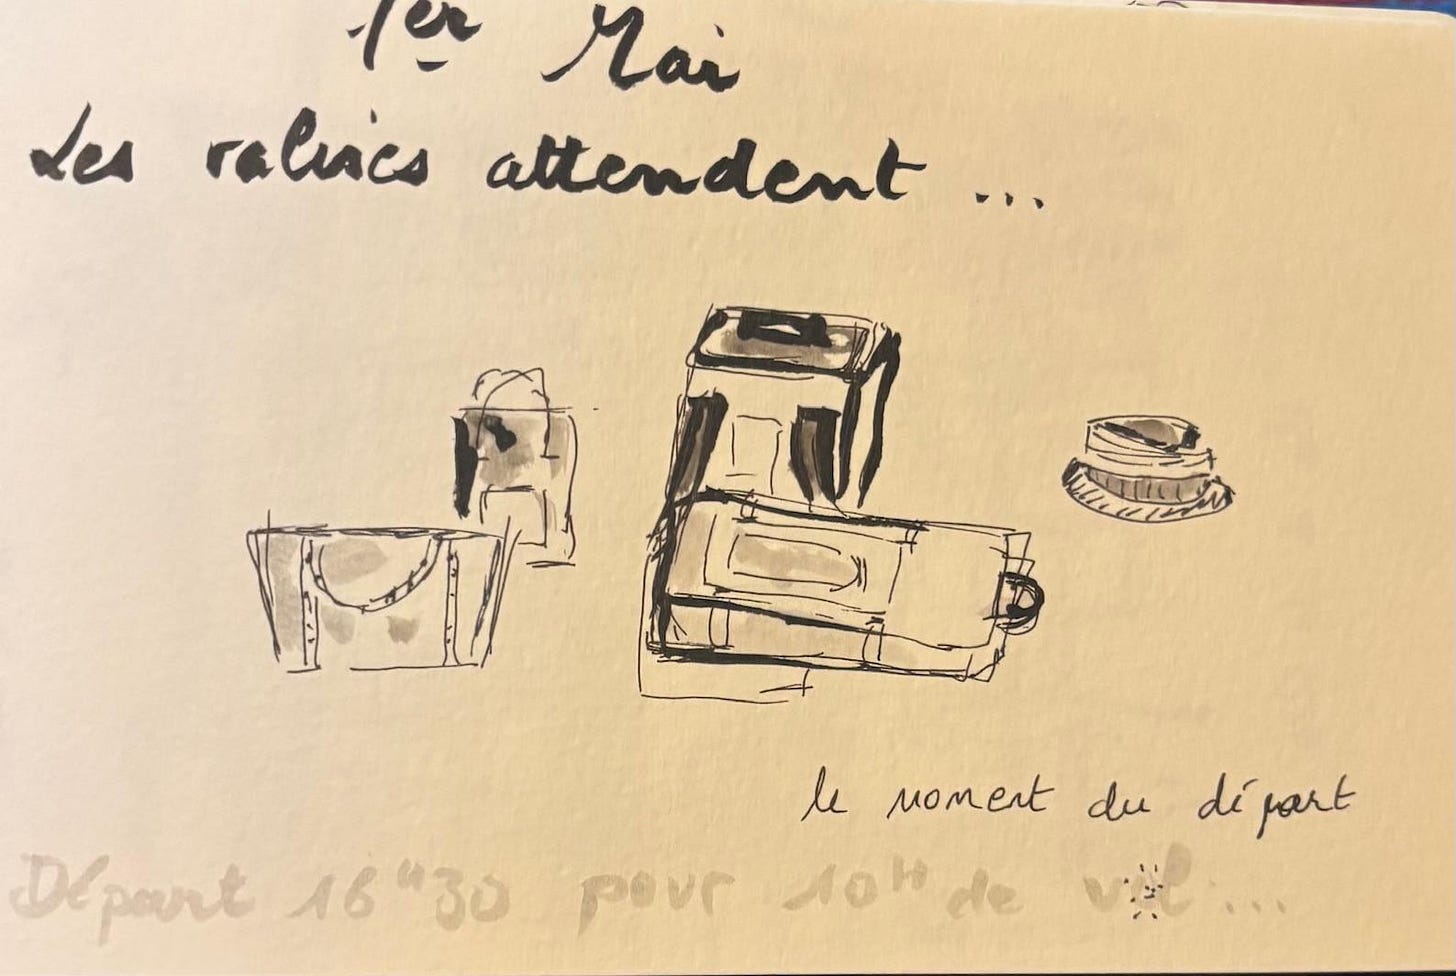 1er Mai
Les valises attendent ...
le moment du départ
Départ 16H30 pour 10H de vol ...